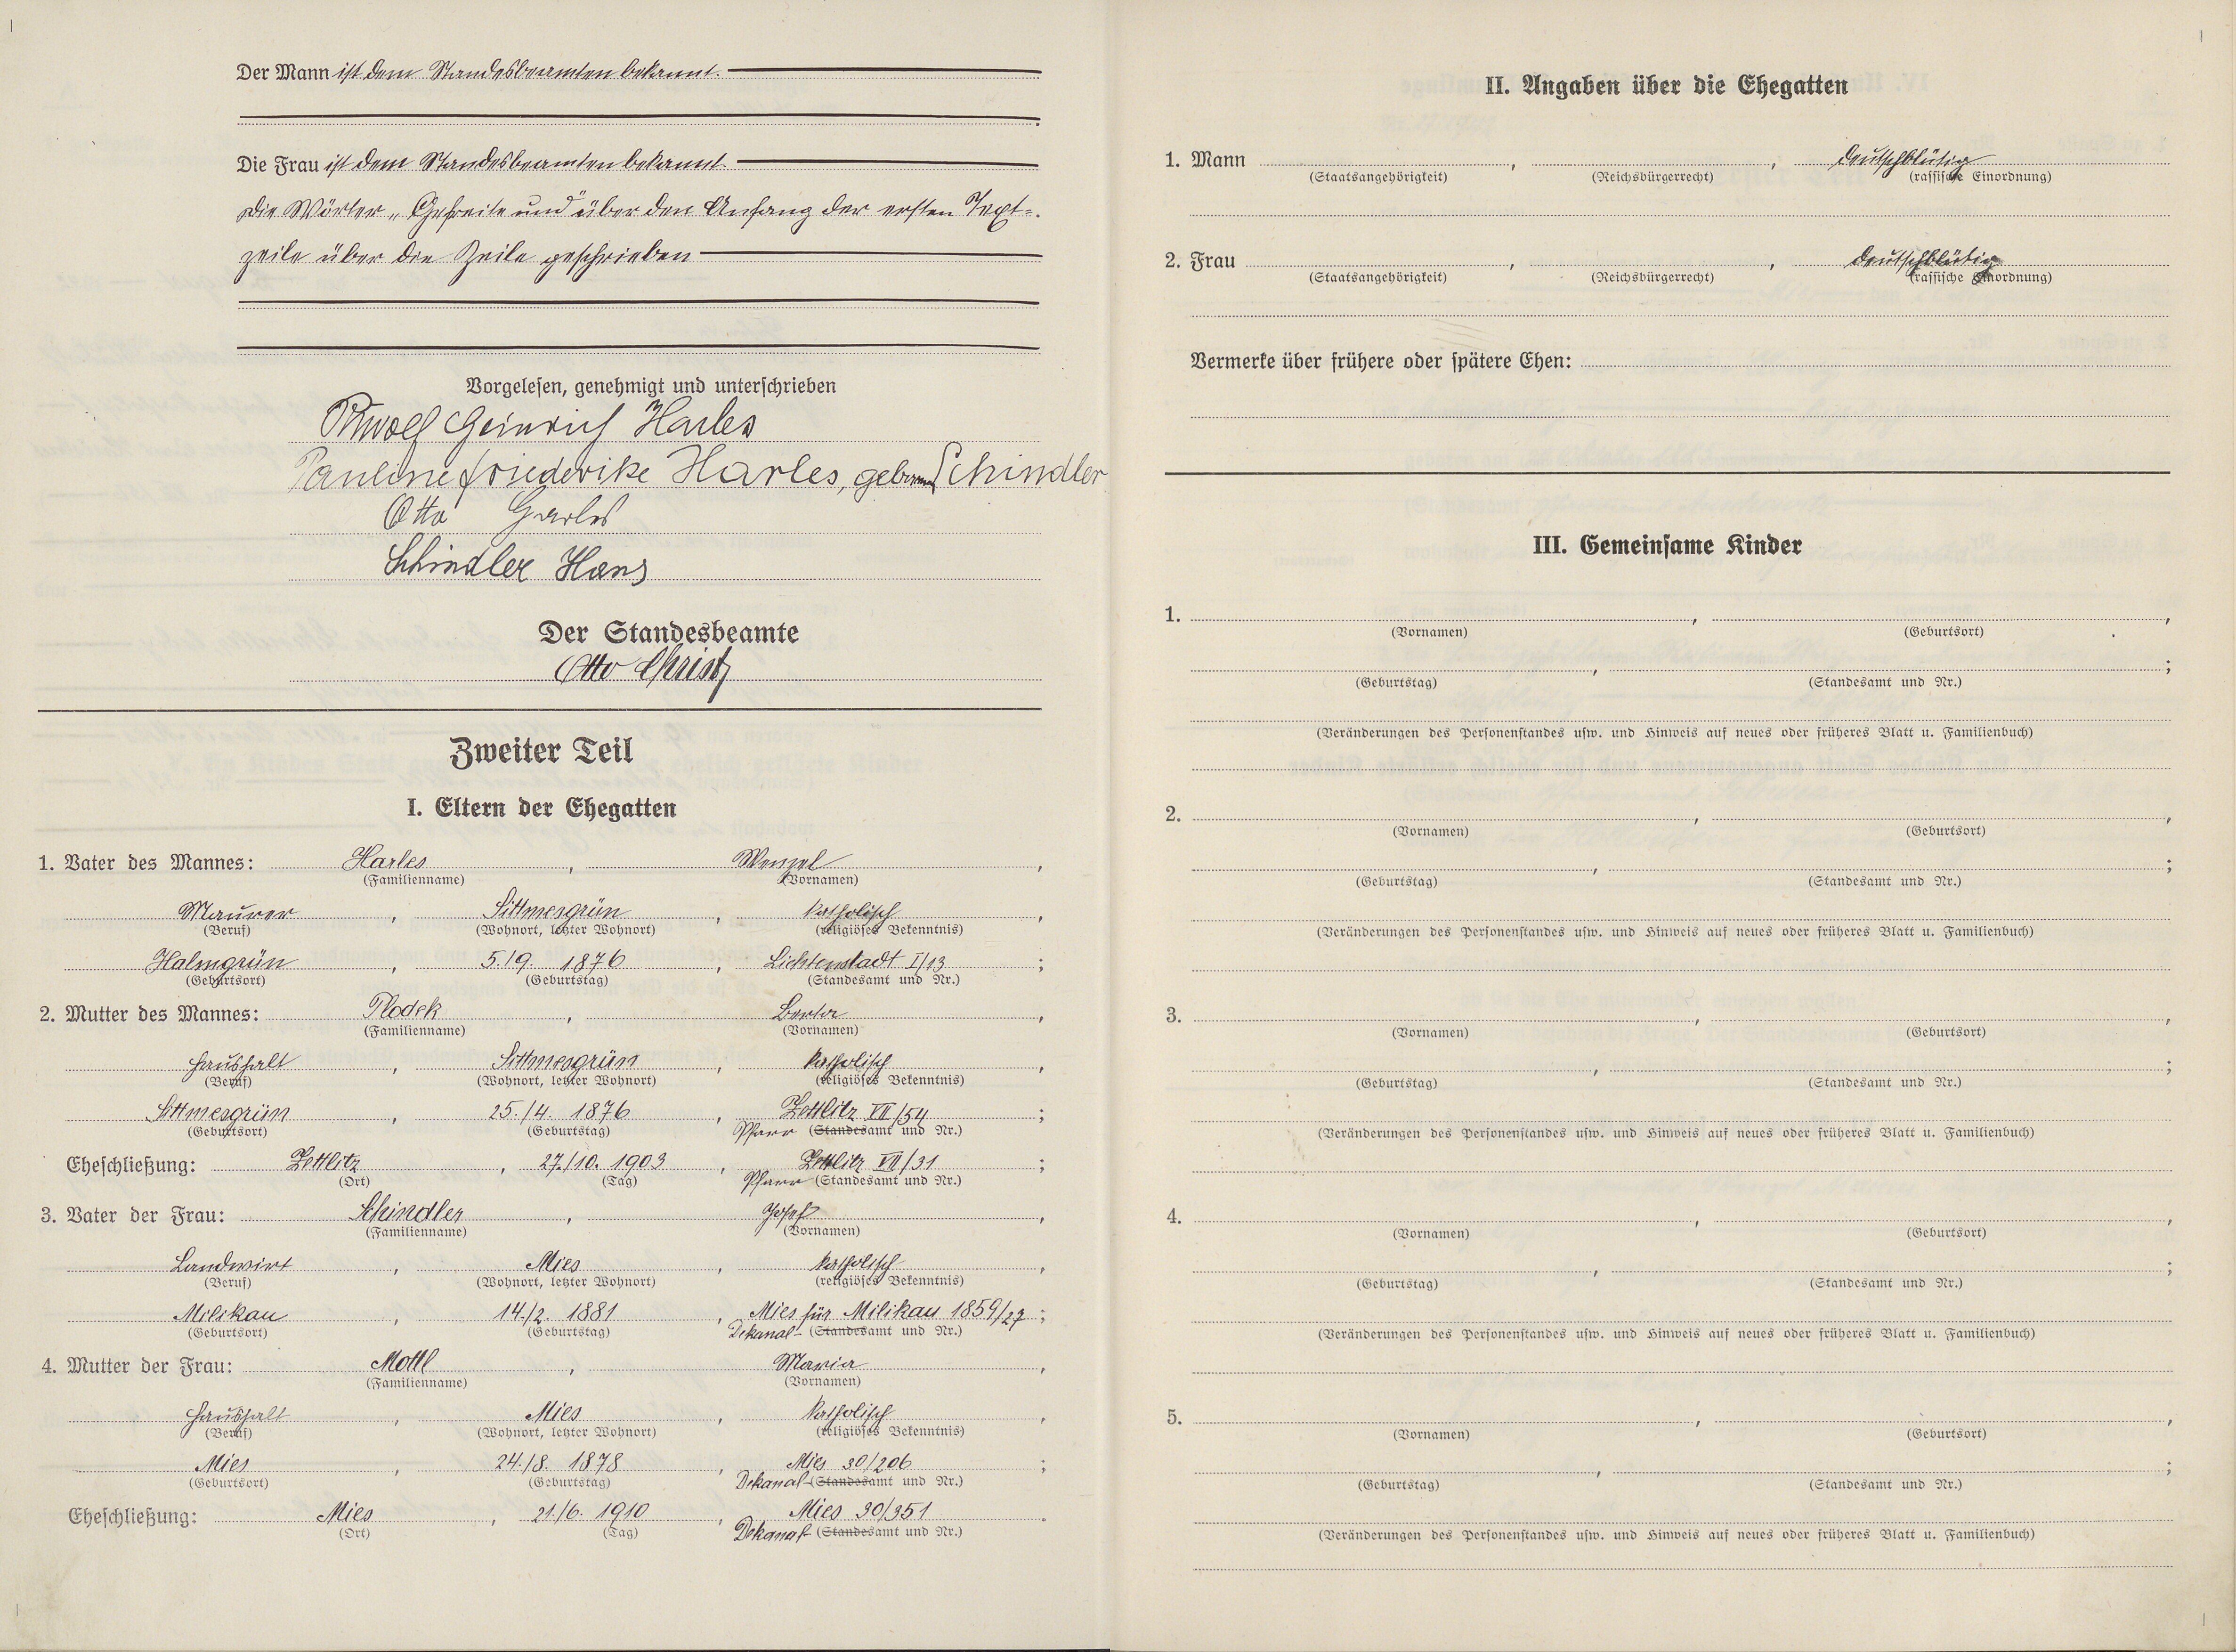 Der Mann ist dem Standesbeamten bekannt.
Die Frau ist dem Standesbeamten bekannt.
Die Wörter „Gefreite und" über den Anfang der ersten Text-
zeile über die Zeile geschrieben
Vorgelesen, genehmigt und unterschrieben
Heinrich Harles
Pauline Friederike Harles, geborene Schindler
Otto Harles
Schindler Hans
Der Standesbeamte
Otto Christ
Zweiter Teil
I. Eltern der Ehegatten
1. Vater des Mannes: Harles, Wenzel,
(Familienname) (Vornamen)
Maurer, Sittmesgrün, katholisch,
(Beruf) (Wohnort, letzter Wohnort) (religiöses Bekenntnis)
Halmgrün, 5./9. 1876, Lichtenstadt I/13;
(Geburtsort) (Geburtstag) (Standesamt und Nr.)
2. Mutter des Mannes: Plodek, Berta,
(Familienname) (Vornamen)
Haushalt, Sittmesgrün, katholisch,
(Beruf) (Wohnort, letzter Wohnort) (religiöses Bekenntnis)
Sittmesgrün, 25./4. 1876, Zettlitz VII/54;
(Geburtsort) (Geburtstag) Pfarr (Standesamt und Nr.)
Eheschließung: Zettlitz, 27./10. 1903, Zettlitz VII/31;
(Ort) (Tag) Pfarr (Standesamt und Nr.)
3. Vater der Frau: Schindler, Josef,
(Familienname) (Vornamen)
Landwirt, Mies, katholisch,
(Beruf) (Wohnort, letzter Wohnort) (religiöses Bekenntnis)
Milikau, 14./2. 1881, Mies für Milikau 1859/27;
(Geburtsort) (Geburtstag) Dekanal- (Standesamt und Nr.)
4. Mutter der Frau: Mottl, Maria,
(Familienname) (Vornamen)
Haushalt, Mies, katholisch,
(Beruf) (Wohnort, letzter Wohnort) (religiöses Bekenntnis)
Mies, 24./8. 1878, Mies 30/206;
(Geburtsort) (Geburtstag) Dekanal- (Standesamt und Nr.)
Eheschließung: Mies, 21./6. 1910, Mies 30/351.
(Ort) (Tag) Dekanal (Standesamt und Nr.)
II. Angaben über die Ehegatten
1. Mann , , deutschblütig
(Staatsangehörigkeit) (Reichsbürgerrecht) (rassische Einordnung)
2. Frau , , deutschblütig
(Staatsangehörigkeit) (Reichsbürgerrecht) (rassische Einordnung)
Vermerke über frühere oder spätere Ehen:
III. Gemeinsame Kinder
1. , ,
(Vornamen) (Geburtsort)
, ;
(Geburtstag) (Standesamt und Nr.)
(Veränderungen des Personenstandes usw. und Hinweis auf neues oder früheres Blatt u. Familienbuch)
2. , ,
(Vornamen) (Geburtsort)
, ;
(Geburtstag) (Standesamt und Nr.)
(Veränderungen des Personenstandes usw. und Hinweis auf neues oder früheres Blatt u. Familienbuch)
3. , ,
(Vornamen) (Geburtsort)
, ;
(Geburtstag) (Standesamt und Nr.)
(Veränderungen des Personenstandes usw. und Hinweis auf neues oder früheres Blatt u. Familienbuch)
4. , ,
(Vornamen) (Geburtsort)
, ;
(Geburtstag) (Standesamt und Nr.)
(Veränderungen des Personenstandes usw. und Hinweis auf neues oder früheres Blatt u. Familienbuch)
5. , ,
(Vornamen) (Geburtsort)
, ;
(Geburtstag) (Standesamt und Nr.)
(Veränderungen des Personenstandes usw. und Hinweis auf neues oder früheres Blatt u. Familienbuch)